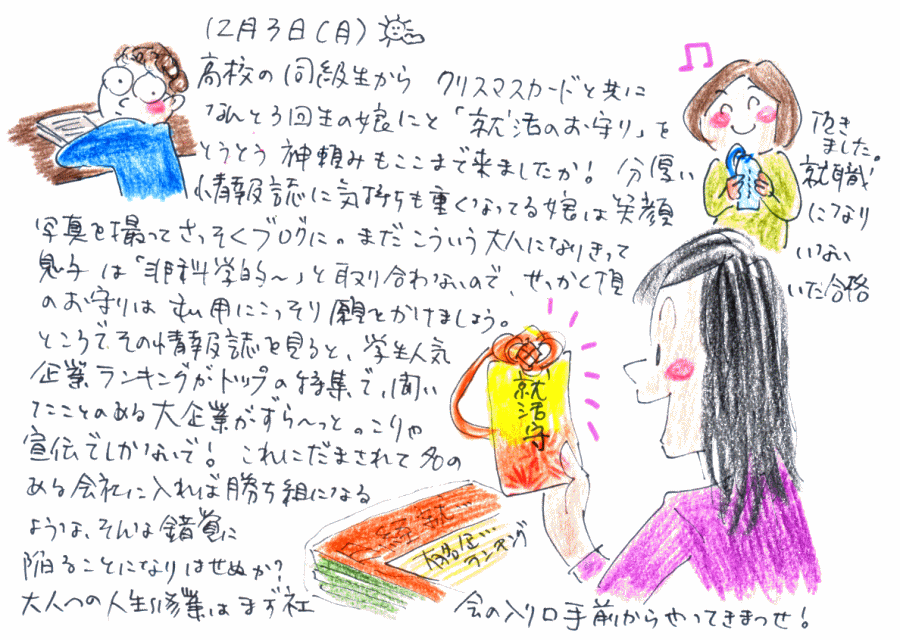 12月3日(月)
高校の同級生から クリスマスカードと共に
なんと3回生の娘にと「就活のお守り」を 頂きました。
とうとう神頼みもここまで来ましたか! 分厚い 就職
情報誌に気持ちも重くなってる娘は笑顔 になり
写真を撮ってさっそくブログに。まだこういう大人になりきって いない
息子は「非科学的〜」と取り合わないので、せっかく頂 いた合格
のお守りは私用にこっそり願をかけましょう。
ところでその情報誌を見ると、学生人気
企業ランキングがトップの特集で、聞い
たことのある大企業がずら〜っとのこりゃ
宣伝でしかないで! これにだまされて名の
ある会社に入れば勝ち組になる
ような、そんな錯覚に
陥ることになりはせぬか?
大人への人生修業はまず社 会の入り口手前からやってきまっせ!
就活守
ランキング